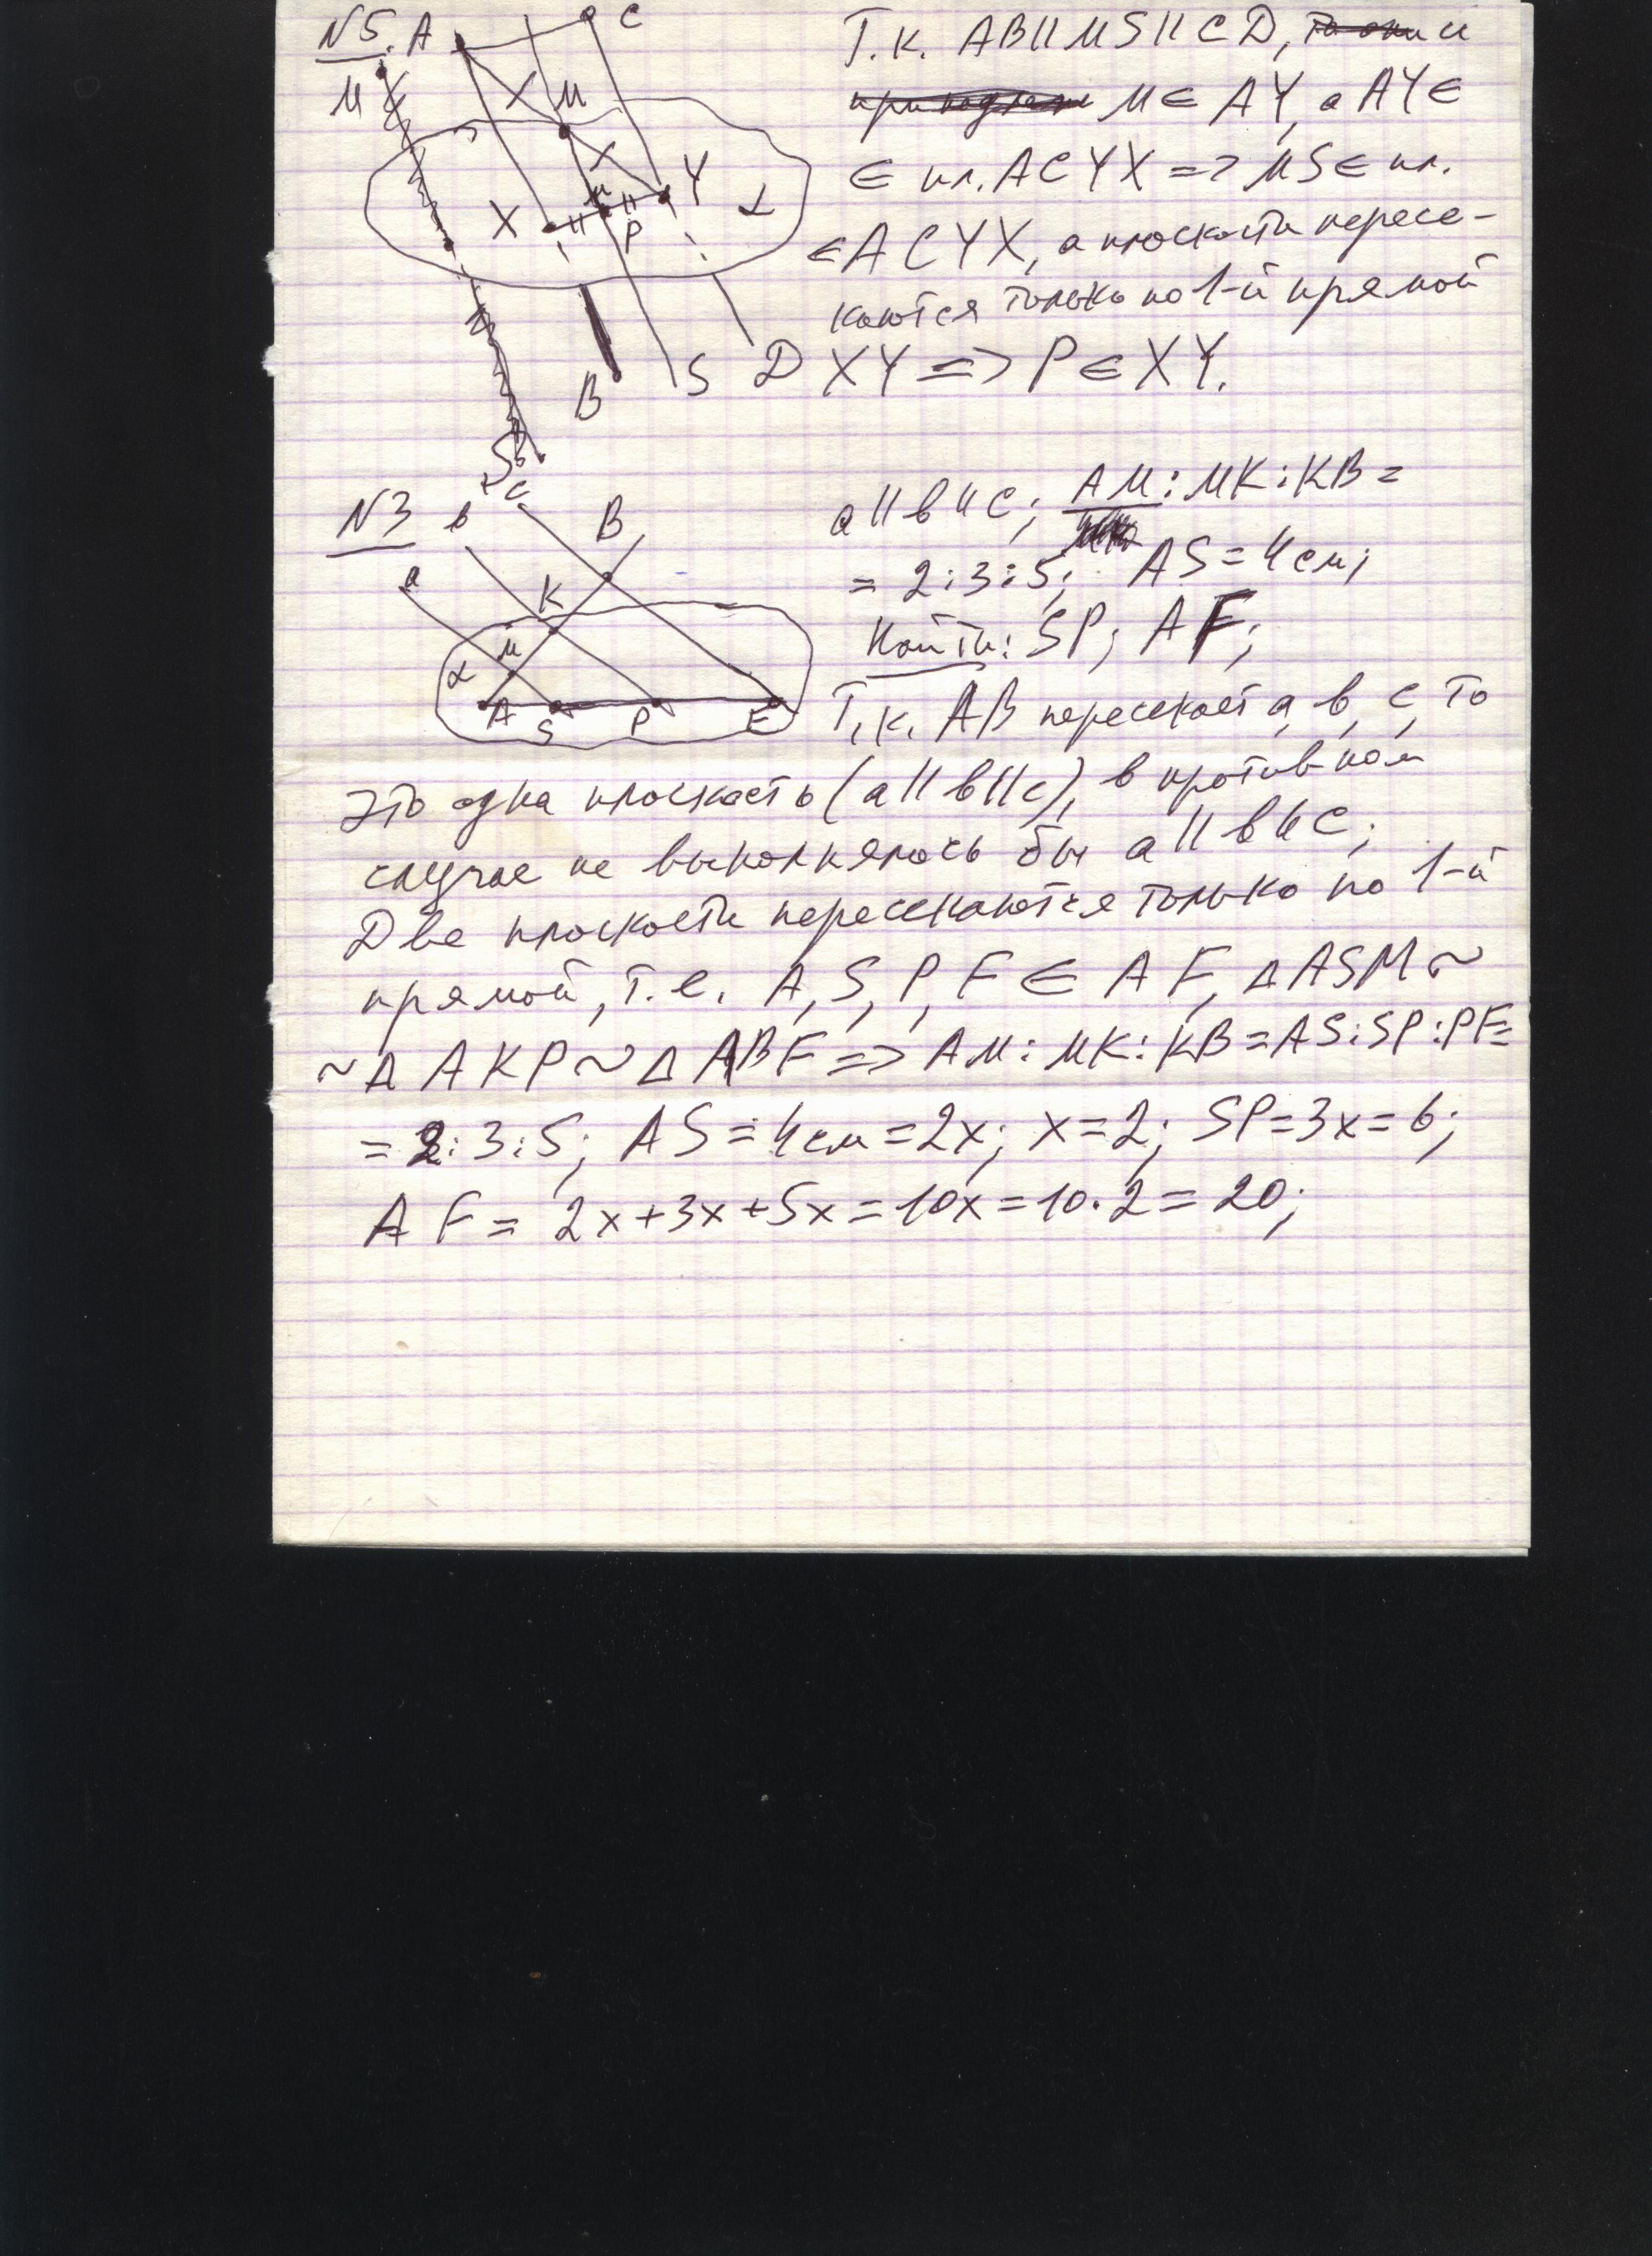 N5.
A
C
M
M
X
Y
P
α
B
S
D
S
Т.к. AB || MS || CD, и
M ∈ AY, а AY ∈
∈ пл. ACYX => MS ∈ пл.
∈ ACYX, а плоскости пересе-
каются только по 1-й прямой
XY => P ∈ XY.
N3
a
в
c
B
K
M
α
A
S
P
F
a || в || c; AM : MK : KB =
= 2 : 3 : 5; AS = 4 см;
Найти: SP; AF;
Т.к. AB пересекает a, в, c, то
это одна плоскость (a || в || c), в противном
случае не выполнялось бы a || в || c;
Две плоскости пересекаются только по 1-й
прямой, т.е. A, S, P, F ∈ AF, Δ ASM ~
~ Δ AKP ~ Δ ABF => AM : MK : KB = AS : SP : PF =
= 2 : 3 : 5; AS = 4 см = 2x; x = 2; SP = 3x = 6;
AF = 2x + 3x + 5x = 10x = 10 · 2 = 20;